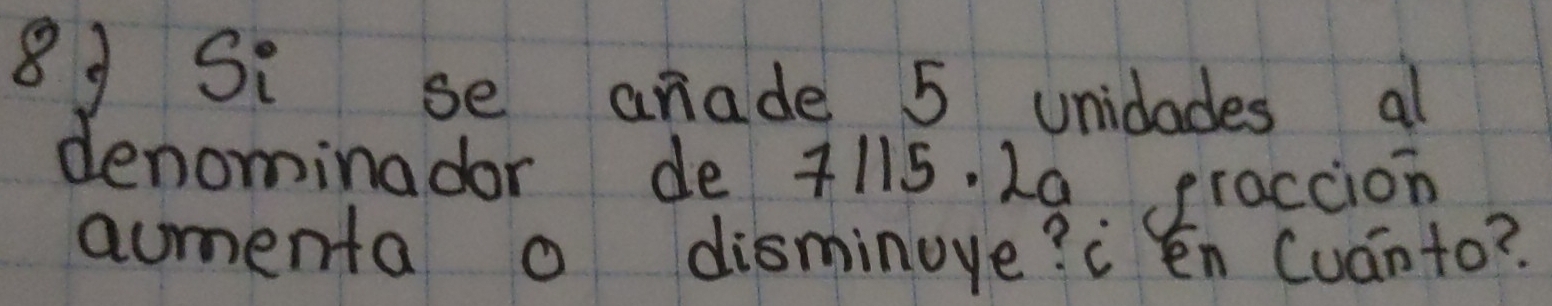 8) Si se añade 5 unidades al
denominador de 7/15. La fracción
aumenta o disminuye? ¿ en Cuánto?.